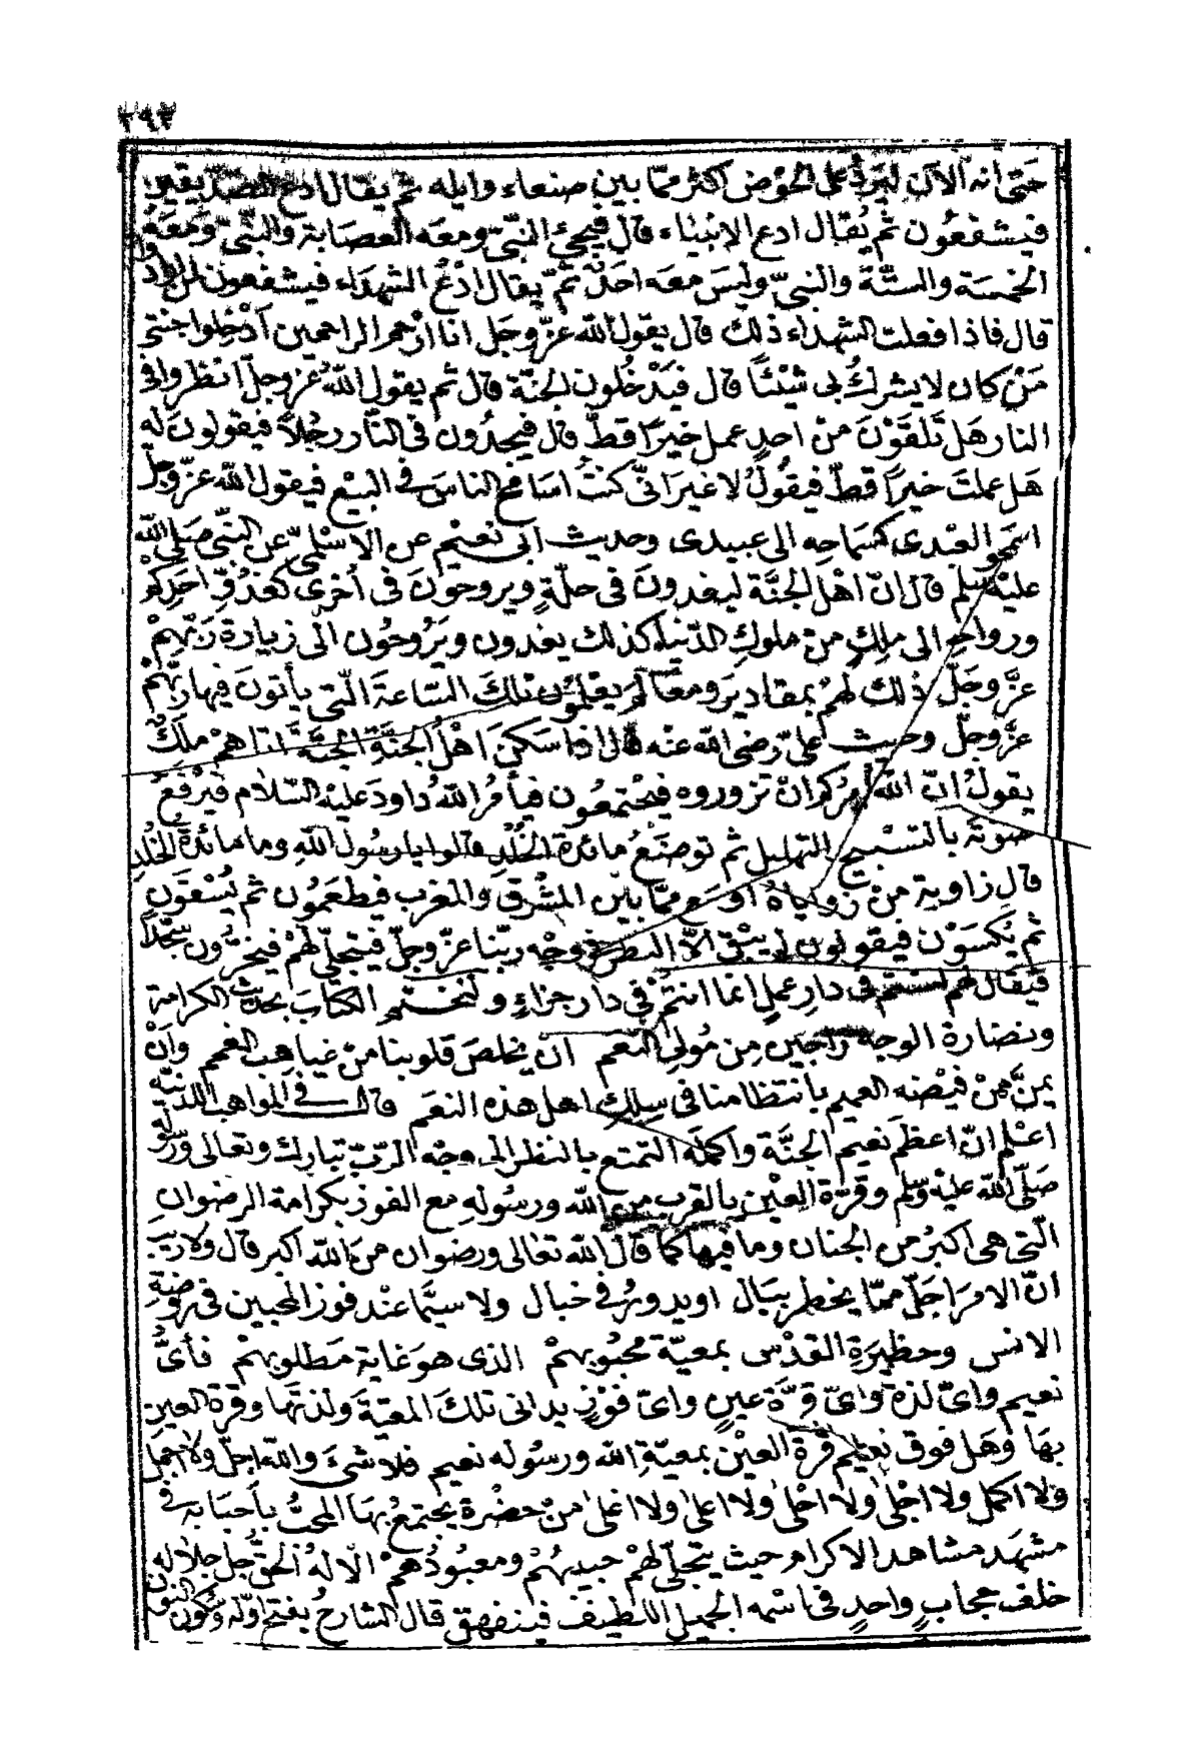 ٢٩٣
حَتى انه الآن ليَرِدُ على الحَوْض اكثر ممّا بين صنعاء وايله ثم يقال ادع الصدّيقين
فيشفعُون ثم يُقال ادع الانبيَاء قال فيجئُ النبّى ومعَه العصَابة والنبّى وَمعَهُ
الخمسَة والستَّة والنبيّ وليسَ معَه احَدٌ ثمّ يقال ادْعُ الشهدَاء فيشفعون لمن اراد وا
قال فاذا فعلت الشهدَاء ذلك قال يقول الله عزّ وجَل انا ارْحم الراحمين ادْخِلوا جنتى
مَنْ كان لا يشركُ بى شيْئًا قال فيَدْخُلون الجنّة قال ثم يقول اللّهُ عز وجلّ انظروا فى
النار هَل تَلقَوْنَ منْ احدٍ عمل خيرًا قطّ قال فيجدُون فى النّار رجُلاً فيقولون له
هَل عملتَ خيراً قطّ فيقُولُ لا غير انّى كنتُ اسَامح الناسَ فى البيْع فيقول اللّه عزّ وجلّ
اسْمَحو العَبْدى كسَماحِه الى عبيدى وحديث ابى نعيْم عن الاسْلمىّ عن النبّى صَلى اللّه
عليْه وسَلم قال انّ اهْل الجنَّة ليغدونَ فى حلّةٍ ويروحَونَ فى أخرى كغدُوِّ احَدِكمْ
ورواحِهِ الى مَلِكٍ منْ ملوكِ الدّنيا كذلك يغدون ويَرُوحُون الى زيارة رَبّهمْ
عزَّ وجَلّ ذلك لهمْ بمقاديرَ ومعَالمَ يعْلمُون تلكَ السّاعةَ الّتى يأتونَ فيها ربّهمْ
عزّ وجلّ وحديث علىّ رضى اللّه عنه قال اذا سَكنَ اهْلُ الجنَّةِ الجنَّةَ اتاهمْ ملَكٌ
يقولُ انّ اللّه يأمرُكم انْ تزوروه فيجْتمعُون فيأمُر اللّهُ داودَ عليْه السّلام فيَرْفعُ
صَوْتهَ بالتسْبيح والتهليل ثم توضَعُ مائدة الخُلْدِ قالوا يا رسُولَ اللّهِ وما مائدة الخُلدِ
قال زاوية منْ زواياهُ اوسَع ممّا بيْن المشْرق والمغرب فيطعَمُون ثم يُسْقَونَ
ثم يُكسَوْن فيقولون لم يبْقَ الاّ النظر فى وجْه ربّنا عزّ وجلّ فيتجلّى لهُمْ فيخرُّون سجَّداً
فيقال لهم لسْتمْ فى دارِ عملٍ انما انتمْ فى دارِ جزاءٍ ولنختْم الكتابَ بحديث الكرامة
ونضارة الوجه راجين من مُولِى النعم انْ يخلصَ قلوبنا منْ غياهِب الغمم وَانْ
يمنَّ منْ فيْضه العميم بانتظامنا فى سِلك اهل هذه النعَم قال فى المواهب اللدنيّة
اعْلم انّ اعظمَ نعيم الجنَّة واكملَه التمتع بالنظر الى وجْه الرّب تبارك وتعالى ورسُوله
صَلى اللّه عليْه وسَلم وقرّة العيْن بالقرب من اللّه ورسُولهِ مع الفوز بكرامة الرضوانِ
الّتى هى اكبرُ من الجنان وما فيها كما قال اللّه تعَالى ورضوان منَ اللّه اكبر قال ولا ريْبَ
انّ الامرَ اجَلّ ممّا يخطر ببَال او يدورُ فى خيال ولا سيَّما عنْد فوز المحبين فى روضَةِ
الانس وحظيرَة القدْس بمعيّة محْبُوبهمْ الذى هوَ غاية مَطلوبهمْ فأىُّ
نعيم واىّ لذة واىّ قرَّة عينٍ واىّ فوْزٍ يدانى تلكَ المعيّةَ ولذتها وقرّة العين
بهَا وَهَل فوق نعيم قرّة العيْن بمعيّةِ اللّه ورسُوله نعيم فلا شىَ واللّه اجلّ ولا اجمل
ولا اكمل ولا اجْلى ولا احْلى ولا اعلى ولا اغلى منْ حضْرة يجتمعُ بهَا المحبُّ باَحبَابه فى
مشهَد مشاهد الاكرام حيث يتجلّى لهمْ حبيبهُمْ ومعبُودُهمْ الاّلهُ الحقُّ جل جلاله
خلف حجابٍ واحدٍ فى اسْمه الجميل اللّطيف فينفهق قال الشارحُ بفتح اوّله وسُكون النون